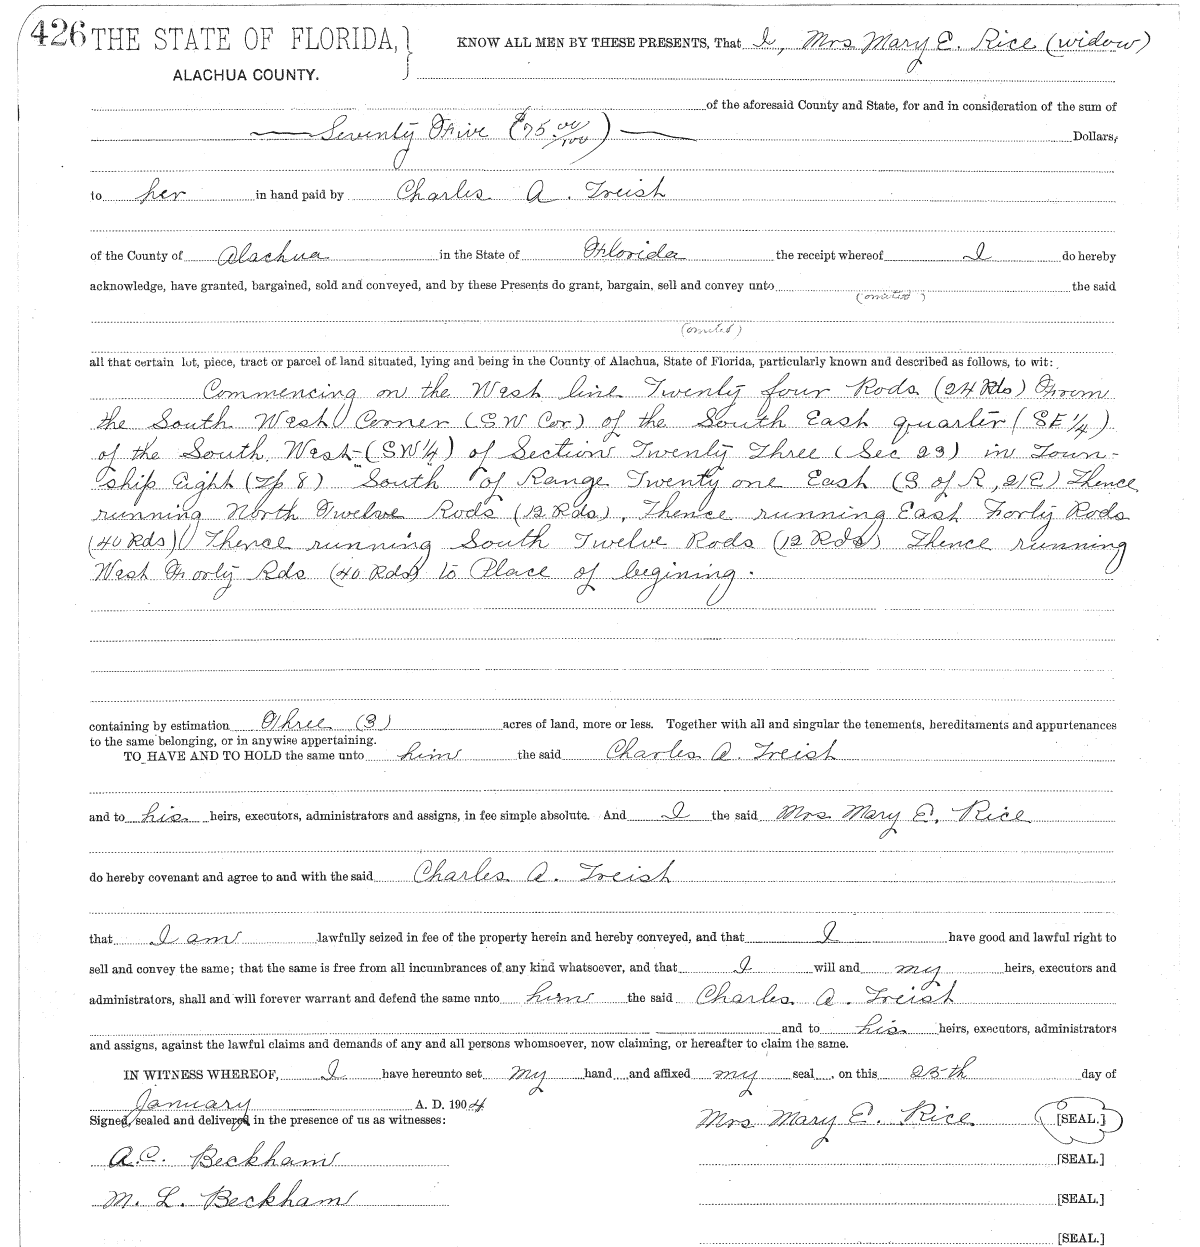 426 THE STATE OF FLORIDA, KNOW ALL MEN BY THESE PRESENTS, That I, Mrs Mary E. Rice (widow)
ALACHUA COUNTY.
of the aforesaid County and State, for and in consideration of the sum of
Seventy Five ($75 00/100) Dollars,
to her in hand paid by Charles A. Treish
of the County of Alachua in the State of Florida the receipt whereof I do hereby
acknowledge, have granted, bargained, sold and conveyed, and by these Presents do grant, bargain, sell and convey unto (omited) the said
(omited)
all that certain lot, piece, tract or parcel of land situated, lying and being in the County of Alachua, State of Florida, particularly known and described as follows, to wit:
Commencing on the West line Twenty four Rods (24 Rds) From
the South West Corner (SW Cor) of the South East quarter (SE 1/4)
of the South West (SW 1/4) of Section Twenty Three (Sec 23) in Town-
ship Eight (Tp 8) South of Range Twenty one East (S of R, 21E) Thence
running North Twelve Rods (12 Rds), Thence running East Forty Rods
(40 Rds) Thence running South Twelve Rods (12 Rds) Thence running
West Forty Rds (40 Rds) to Place of begining.
containing by estimation Three (3) acres of land, more or less. Together with all and singular the tenements, hereditaments and appurtenances
to the same belonging, or in anywise appertaining.
TO HAVE AND TO HOLD the same unto him the said Charles A. Treish
and to his heirs, executors, administrators and assigns, in fee simple absolute. And I the said Mrs Mary E. Rice
do hereby covenant and agree to and with the said Charles A. Treish
that I am lawfully seized in fee of the property herein and hereby conveyed, and that I have good and lawful right to
sell and convey the same; that the same is free from all incumbrances of any kind whatsoever, and that I will and my heirs, executors and
administrators, shall and will forever warrant and defend the same unto him the said Charles A. Treish
and to his heirs, executors, administrators
and assigns, against the lawful claims and demands of any and all persons whomsoever, now claiming, or hereafter to claim the same.
IN WITNESS WHEREOF, I have hereunto set my hand and affixed my seal, on this 25th day of
January A. D. 1904
Signed, sealed and delivered in the presence of us as witnesses: Mrs Mary E. Rice [SEAL.]
A.C. Beckham [SEAL.]
M. L. Beckham [SEAL.]
[SEAL.]